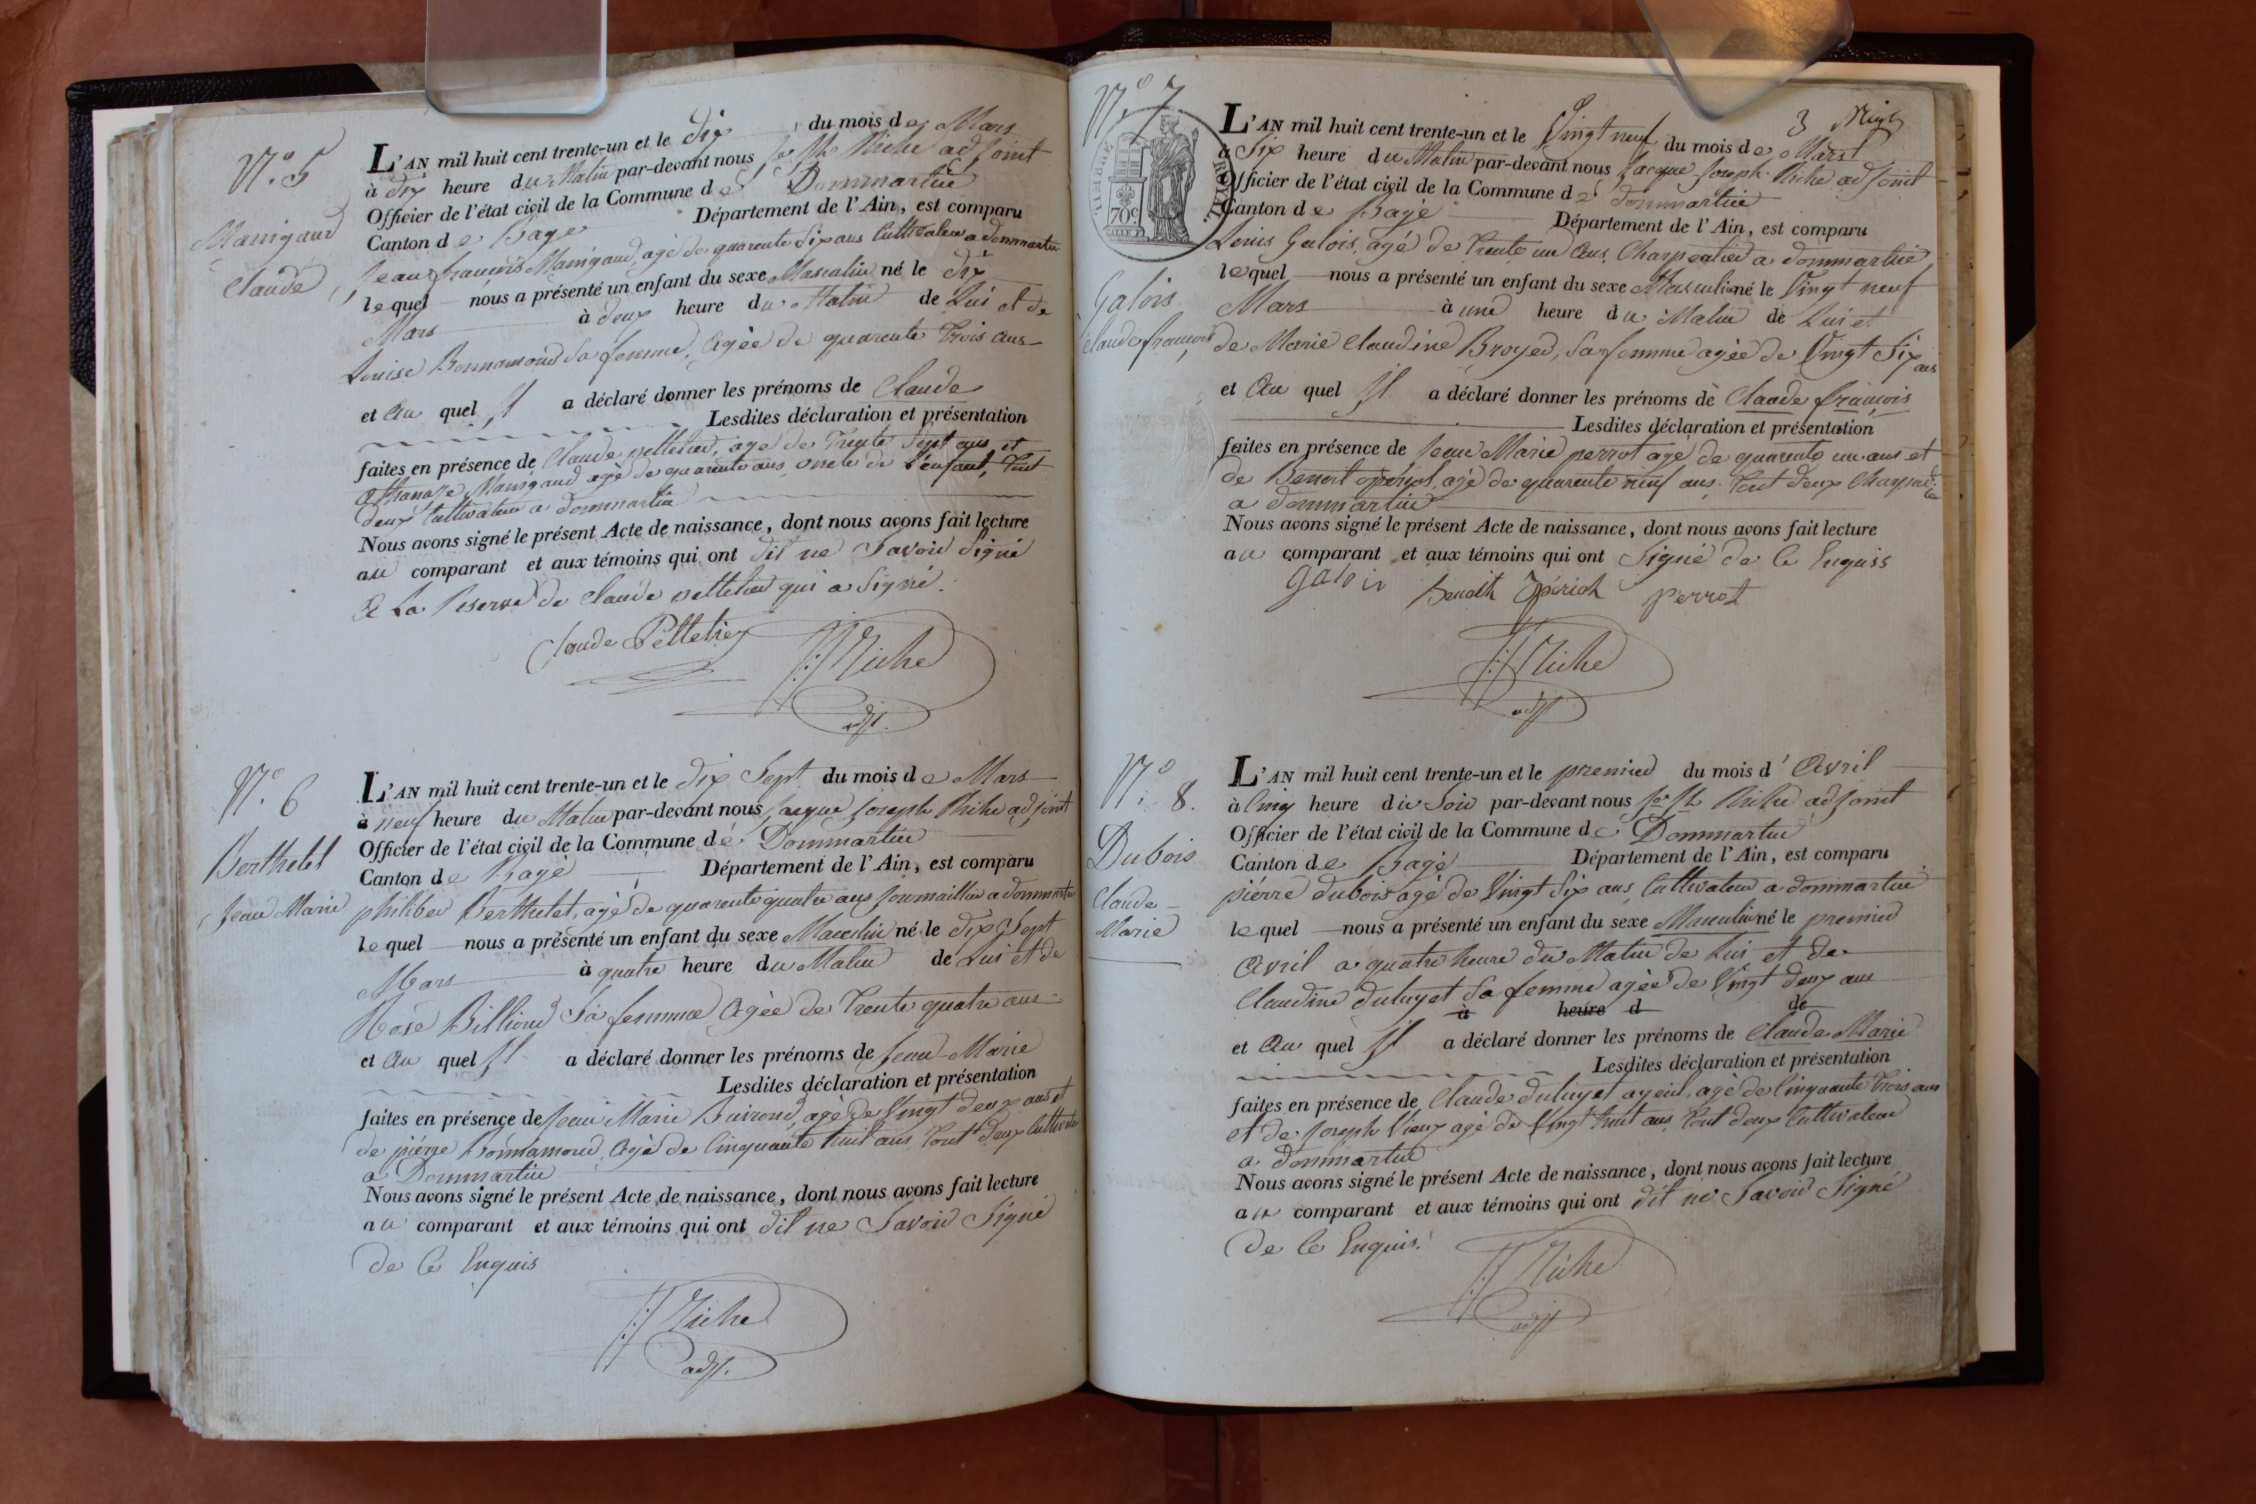 N.o 5
Manigand
Claude
L'AN mil huit cent trente-un et le dix du mois de Mars
à dix heure du Matin par-devant nous jos ph Riche adjoint
Officier de l'état civil de la Commune de Dommartin
Canton de Bagé Département de l'Ain, est comparu
Jean françois Manigand, agé de quarante six ans Cultivateur a dommartin
lequel nous a présenté un enfant du sexe Masculin né le dix
Mars à deux heure du Matin de Lui et de
Louise Bonnamour Sa femme, agée de quarante trois ans
et au quel Il a déclaré donner les prénoms de Claude
Lesdites déclaration et présentation
faites en présence de Claude pelletier, agé de trente Sept ans et
athanasse Manigand agé de quarante ans, oncle de l'enfant, tout
deux Cultivateur a dommartin
Nous avons signé le présent Acte de naissance, dont nous avons fait lecture
au comparant et aux témoins qui ont dit ne Savoir Signé
a La Reserve de Claude pelletier qui a Signé.
Claude Pelletier
JJ Riche
adjt.
N.o 6
Berthelet
Jean Marie
L'AN mil huit cent trente-un et le dix Sept du mois de Mars
à neuf heure du Matin par-devant nous Jacque Joseph Riche adjoint
Officier de l'état civil de la Commune de Dommartin
Canton de Bagé Département de l'Ain, est comparu
philiber Berthelet, agé de quarante quatre ans journaillier a dommartin
lequel nous a présenté un enfant du sexe Masculin né le dix Sept
Mars à quatre heure du Matin de Lui et de
Rose Billioud Sa femme agée de trente quatre ans
et au quel Il a déclaré donner les prénoms de Jean-Marie
Lesdites déclaration et présentation
faites en présence de Jean Marie Buiroud, agé de Vingt deux ans et
de piérre Bonnamour, agé de Cinquante huit ans tout deux Cultivateur
a Dommartin
Nous avons signé le présent Acte de naissance, dont nous avons fait lecture
au comparant et aux témoins qui ont dit ne Savoir Signé
de Ce Enquis
JJ Riche
adjt.
N.o 7
TIMBRE ROYAL
70c
3 Migt
Galois
Claude françois
L'AN mil huit cent trente-un et le Vingt neuf du mois de Mars
à Six heure du Matin par-devant nous Jacque Joseph Riche adjoint
Officier de l'état civil de la Commune de dommartin
Canton de Bagé Département de l'Ain, est comparu
Louis Galois, agé de trente un ans Charpentier a dommartin
lequel nous a présenté un enfant du sexe Masculin né le Vingt neuf
Mars à une heure du Matin de Lui et
de Marie Claudine Broyer, Sa femme agée de Vingt Six ans
et au quel Il a déclaré donner les prénoms de Claude françois
Lesdites déclaration et présentation
faites en présence de Jean Marie perrot agé de quarante un ans et
de Benoit opériol, agé de quarante neuf ans. tout deux
a dommartin
Nous avons signé le présent Acte de naissance, dont nous avons fait lecture
au comparant et aux témoins qui ont Signé de Ce Enquis
Galois Benoit Opériol perrot
JJ Riche
adjt
N.o 8.
Dubois
Claude-
Marie
L'AN mil huit cent trente-un et le premier du mois d' avril
à Cinq heure du Soir par-devant nous Jos ph Riche adjoint
Officier de l'état civil de la Commune de Dommartin
Canton de Bagé Département de l'Ain, est comparu
piérre dubois agé de Vingt Six ans, Cultivateur a dommartin
lequel nous a présenté un enfant du sexe Masculin né le premier
avril a quatre heure du Matin de Lui et de
Claudine duluyet Sa femme agée de Vingt deux ans
à heure d de
et au quel Il a déclaré donner les prénoms de Claude Marie
Lesdites déclaration et présentation
faites en présence de Claude duluyet ayeul, agé de Cinquante trois ans
et de Joseph Vieux agé de Vingt huit ans, tout deux Cultivateur
a dommartin
Nous avons signé le présent Acte de naissance, dont nous avons fait lecture
au comparant et aux témoins qui ont dit ne Savoir Signé
de Ce Enquis.
JJ Riche
adjt